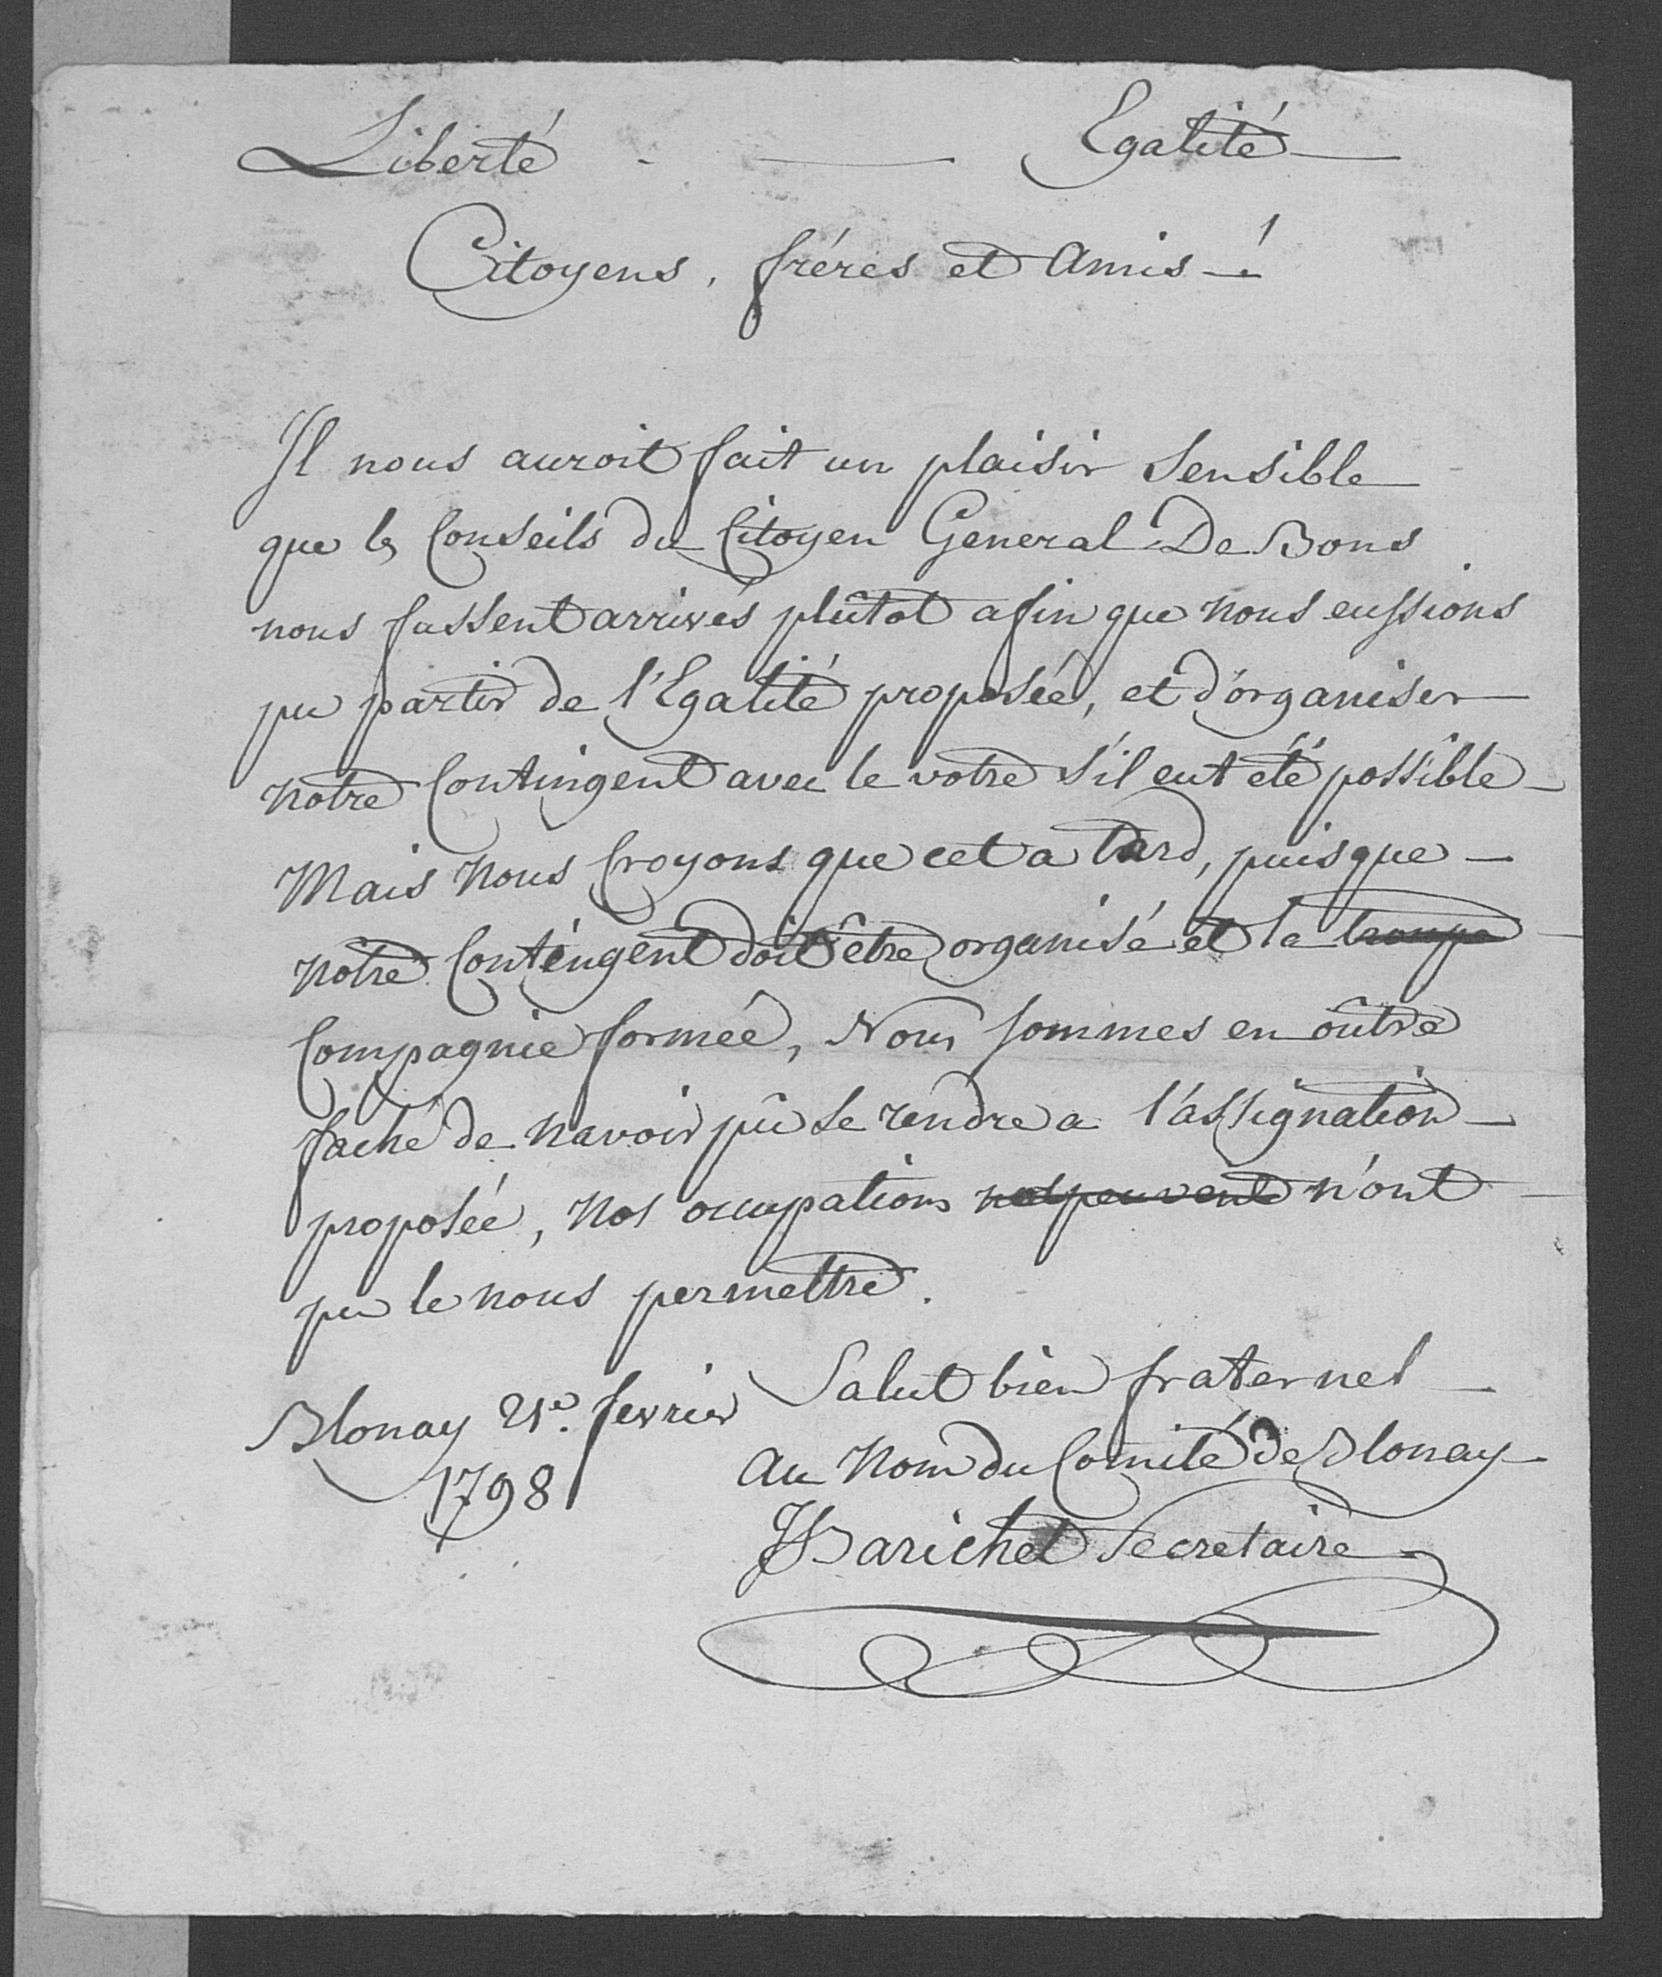 Liberté - — Egalité —
Citoyens, fréres et Amis — !
Il nous auroit fait un plaisir sensible
que les Conseils du Citoyen General De Bons
nous fussent arrivés plûtot afin que nous eussions
pu partir de l'Egalité proposée, et d'organiser
notre Contingent avec le votre s'il eut été possible
Mais nous Croyons que cet a tard, puisque —
nôtre Contingent doit être organisé et la troupe
Compagnie formée, Nous sommes en oûtre
faché de navoir pû se rendre a l'assignation —
proposée, nos occupations ne peuvent n'ont
pu le nous permettre.
Salut bien fraternel —
Blonay 21e. fevrier
1798
au Nom du Comité de Blonay
JBarichet Secretaire